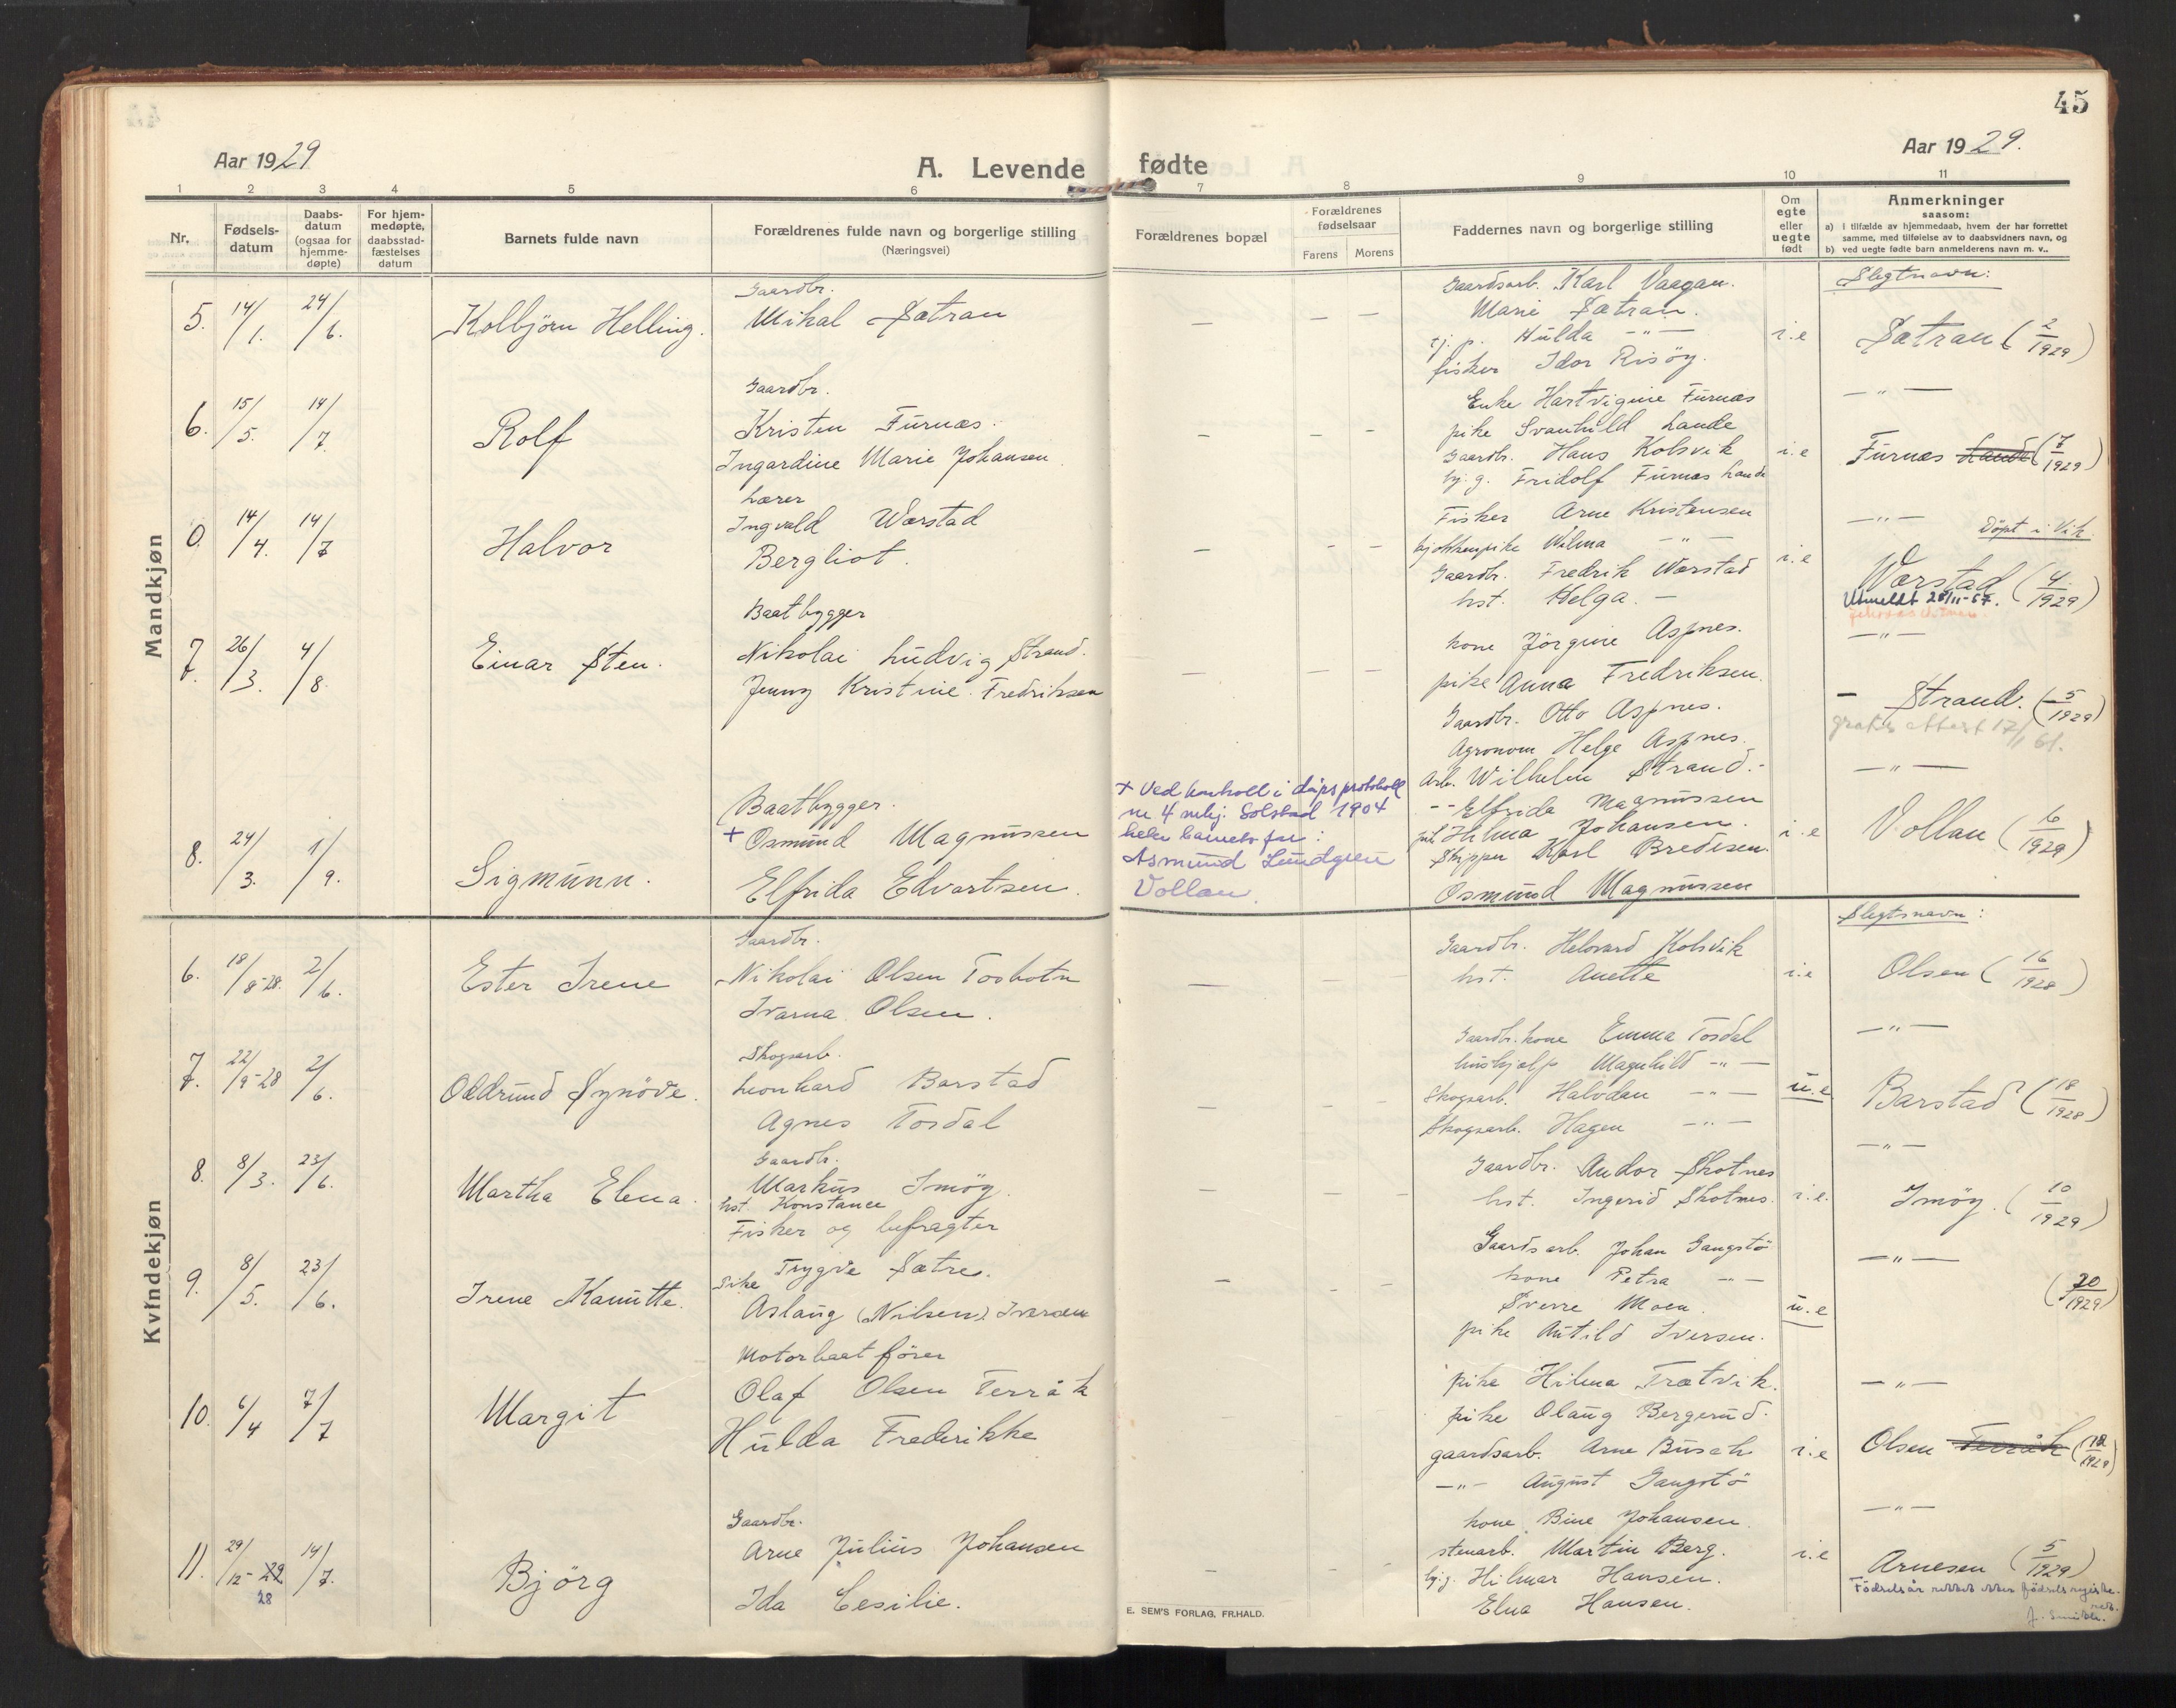 45
Aar 1929
A. Levende fødte
Aar 1929.
1 2 3 4 5 6 7 8 9 10 11
Nr.
Fødsels-
datum
Daabs-
datum
(ogsaa for
hjemme-
døpte)
For hjem-
medøpte,
daabsstad-
fæstelses
datum
Barnets fulde navn
Forældrenes fulde navn og borgerlige stilling
(Næringsvei)
Forældrenes bopæl
Forældrenes
fødselsaar
Farens Morens
Faddernes navn og borgerlige stilling
Om
egte
eller
uegte
født
Anmerkninger
saasom:
a) i tilfælde av hjemmedaab, hvem der har forrettet
samme, med tilføielse av to daabsvidners navn, og
b) ved uegte fødte barn anmelderens navn m. v..
Mandkjøn
5. 14/1. 24/6. Kolbjörn Helling.
Gaardbr.
Mikal Sætran
— — —
Gaardsarb. Karl Vaagan.
Marie Sætran.
tj. p. Hulda —"—
fisker Idor Risöy.
i.e
Slegtnavn:
Sætran (2/1929)
6. 15/5. 14/7. Rolf
Gaardbr.
Kristen Furnæs.
Ingardine Marie Johansen.
— — —
Enke Hartvigine Furnæs
pike Svanhild Lande
Gaardbr. Hans Kolsvik
tj. g. Fridolf Furnæs Lande
i.e
—"—
Furnæs Lande (7/1929)
0. 14/4. 14/7 Halvor
Lærer
Ingvald Wærstad
Bergliot.
— — —
Fisker Arne Kristensen
kjøkkenpike Wilma —"—
Gaardbr. Fredrik Wærstad
hst. Helga. —
i.e
—"— Döpt i Vik
Wærstad (4/1929)
Utmeldt 28/11-57.
7. 26/3. 4/8. Einar Sten.
Baatbygger
Nikolai Ludvig Strand.
Jenny Kristine Fredriksen
— — —
kone Jörgine Aspnes.
pike Anna Fredriksen.
Gaardbr. Otto Aspnes.
Agronom Helge Aspnes.
—"—
— Strand. (5/1929)
gratis attest 17/11 61.
8. 24/3. 1/9. Sigmunn.
Baatbygger.
+ Osmund Magnussen
Elfrida Edvartsen.
+ Ved kontroll i dåpsprotokoll
nr 4 mkj. Solstad 1904
heter barnets far:
Asmund Lundgren
Vollan.
Arb. Wilhelm Strand.
-- Elfrida Magnussen
pik. Hilma Johansen.
Skipper Karl Bredesen.
Osmund Magnussen
i.e
—"—
Vollan (16/1929)
Kvindekjøn
6. 18/8-28. 2/6. Ester Irene
Gaardbr.
Nikolai Olsen Tosbotn
Ivarna Olsen.
— —
Gaardbr. Helovard Kolsvik
hst. Anette
i.e
Slegtsnavn:
Olsen (16/1928)
7. 22/9-28 2/6. Oddrund Synöve.
Skogsarb.
Leonhard Barstad
Agnes Tosdal
— — —
Gaardbr. kone Emma Tosdal
hushjelp Magnhild —"—
Skogsarb. Halvdan —"—
Skogsarb. Hagen —"—
u.e
—"—
Barstad (18/1928)
8. 8/3. 23/6. Martha Elena.
Gaardbr.
Markus Imöy.
hst. Konstance
— — —
Gaardbr. Andor Skotnes
hst. Ingerid Skotnes.
i.e.
—"—
Imöy. (10/1929)
9. 8/5. 23/6. Irene Kanutte.
Fisker og befragter
Trygve Sætre.
Pike
Aslaug (Nilsen) Iversen
— —
Gaardsarb. Johan Gangstö
kone Petra —"—
Sverre Moen.
pike Autild Iversen.
u.e
—"—
(20/1929)
10. 6/4 7/7 Margit
Motorbaatfører
Olaf Olsen Terråk
Hulda Frederikke
pike Hilma Trætvik.
pike Olaug Bergerud.
gaardsarb. Arne Busch
—"— August Gangstö
i.e
—"—
Olsen Terråk (12/1929)
11. 29/12-29 28 14/7. Björg
Gaardbr.
Arne Julius Johansen
Ida Cesilie.
— -
kone Bine Johansen.
stenarb. Martin Berg.
tj.g. Hilmar Hansen.
Elna Hansen.
i.e
—"—
Arnesen (5/1929)
Fødselsår rettet etter fødselsregiste-
ret.
E. SEM'S FORLAG, FR.HALD.